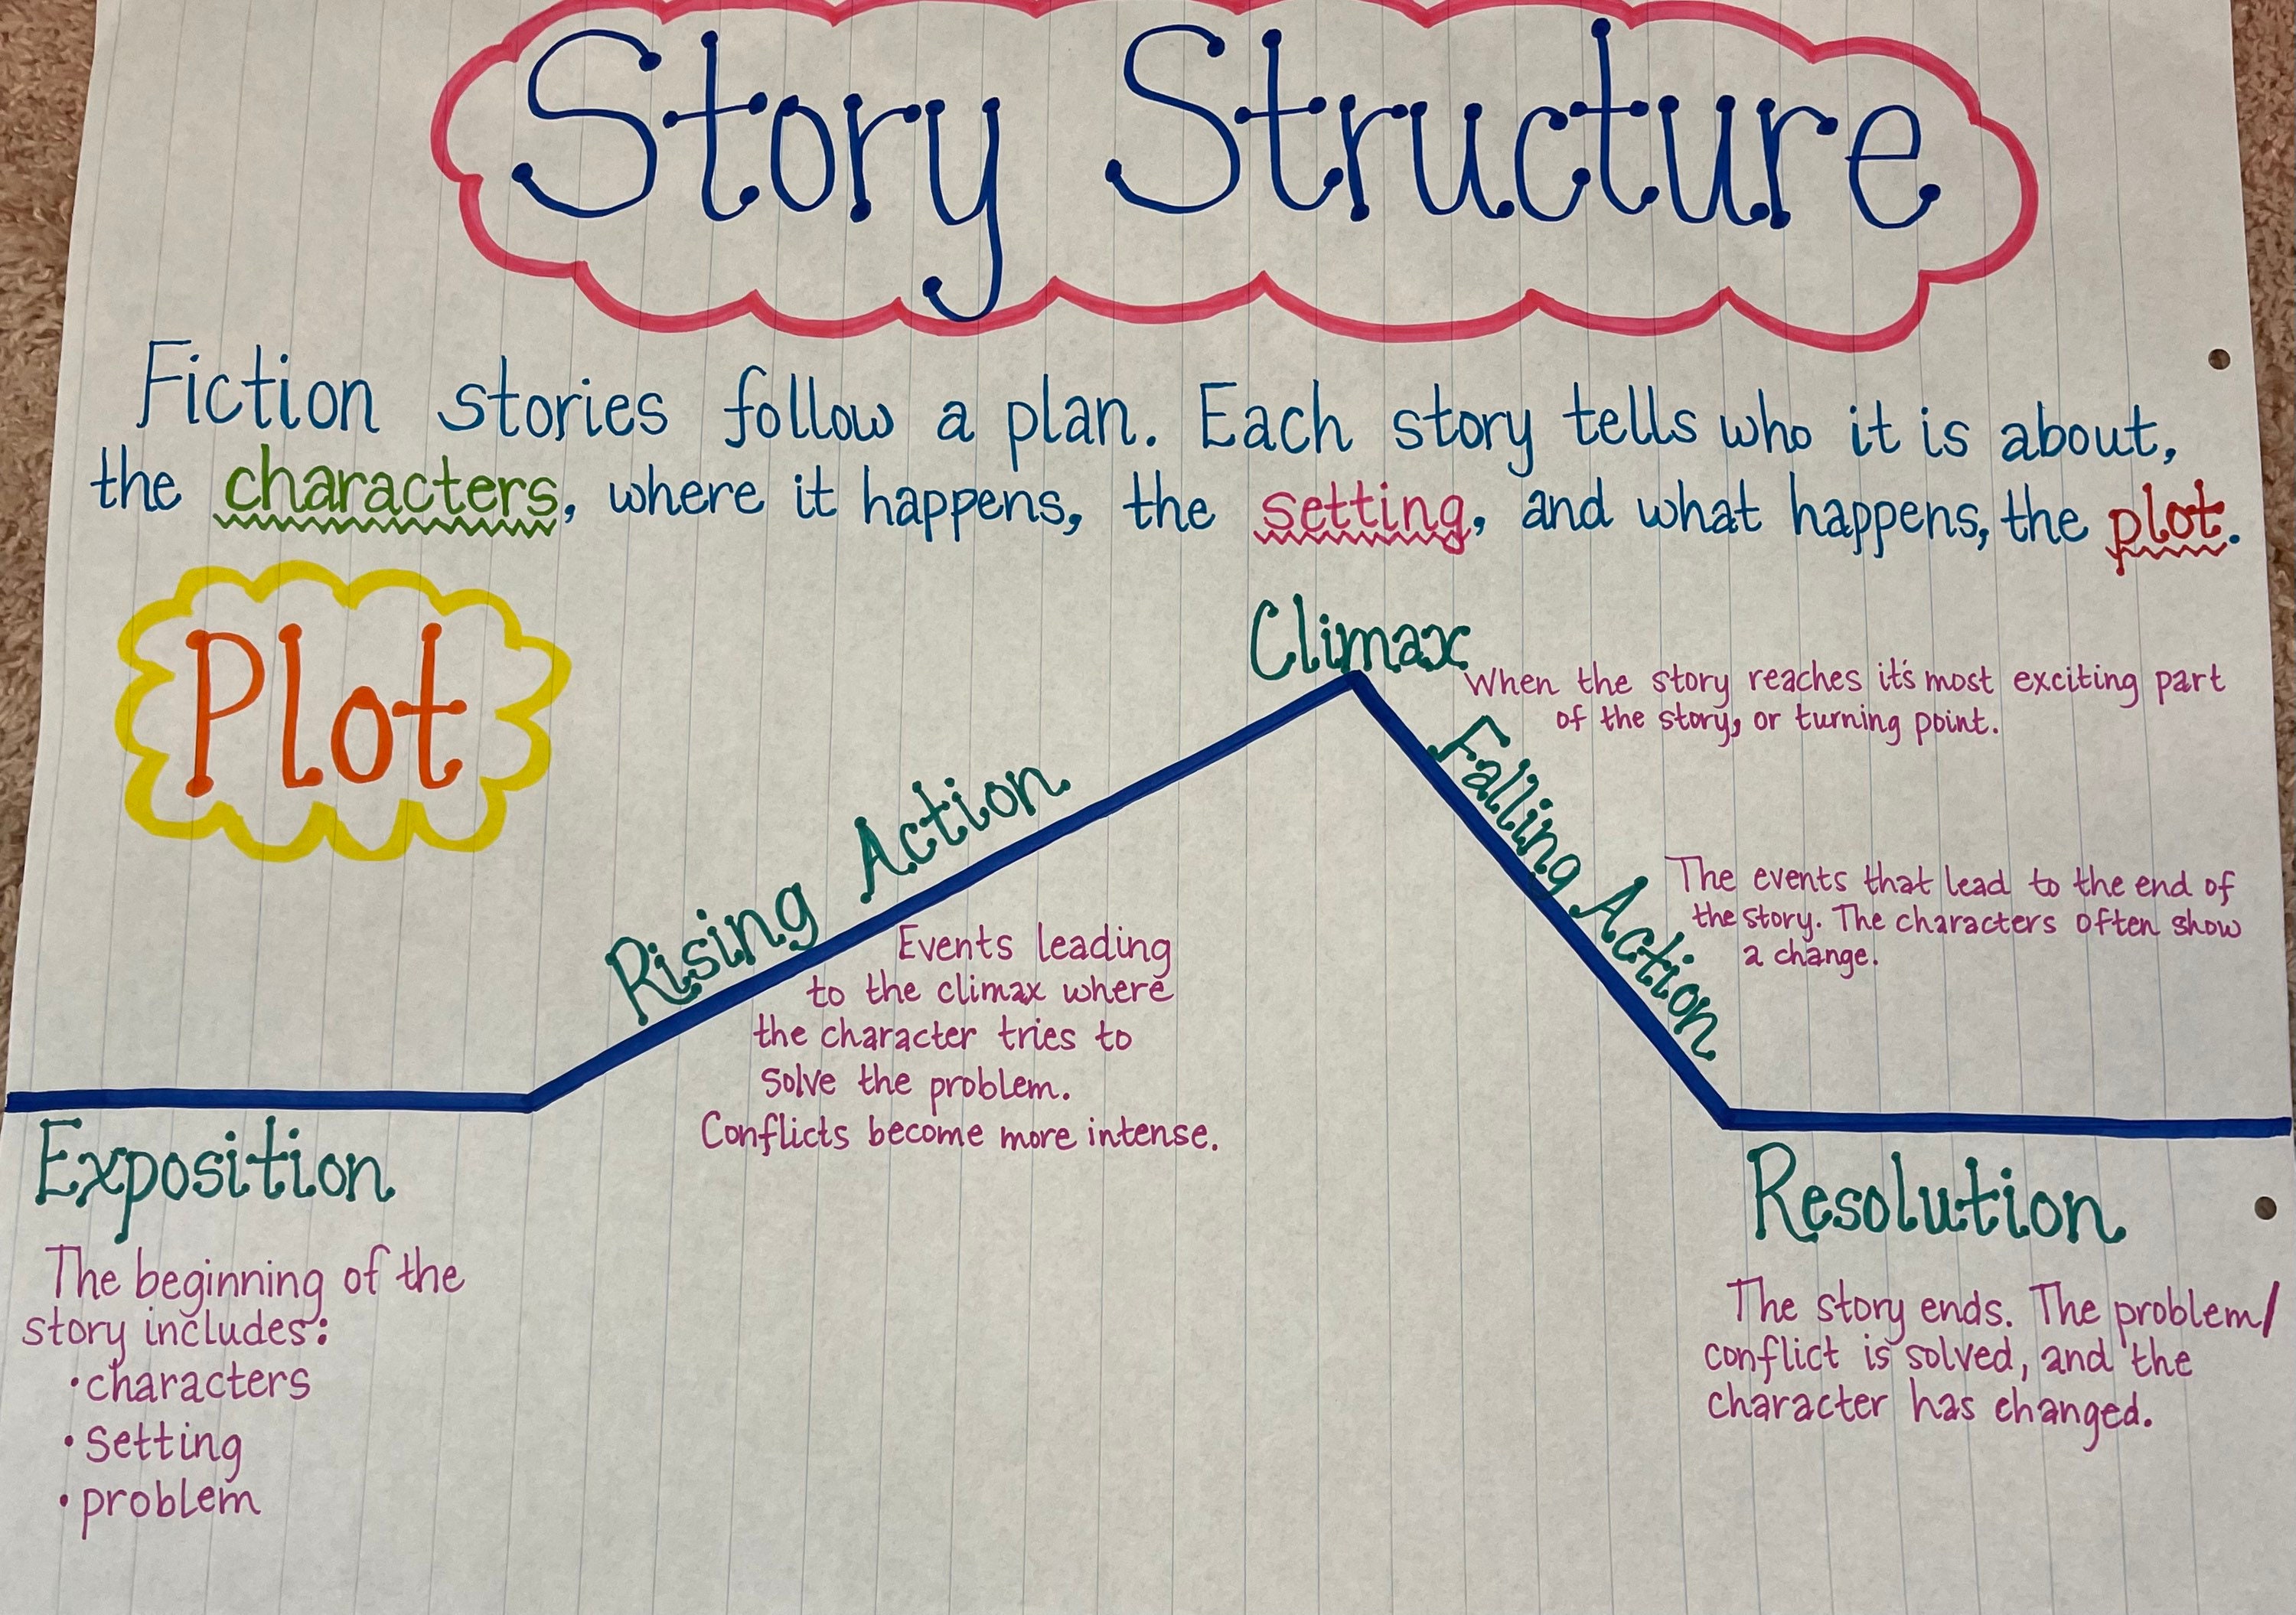 Story Structure
Fiction stories follow a plan. Each story tells who it is about,
the characters, where it happens, the setting, and what happens, the plot.
Plot
Climax
When the story reaches it's most exciting part
of the story, or turning point.
Rising Action
Events leading
to the climax where
the character tries to
solve the problem.
Conflicts become more intense.
Falling Action
The events that lead to the end of
the story. The characters often show
a change.
Exposition
The beginning of the
story includes:
• characters
• setting
• problem
Resolution
The story ends. The problem/
conflict is solved, and the
character has changed.